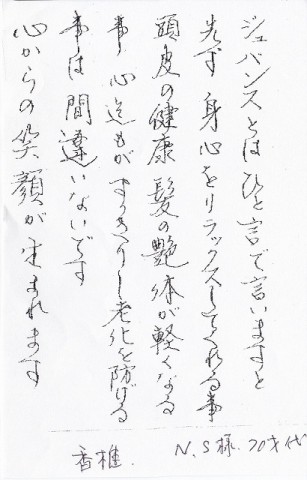 ジュバンスとはひと言で言いますと
先ず身心をリラックスしてくれる事
頭皮の健康髪の艶体が軽くなる
事心迄もがすっきりし老化を防げる
事は間違いないです
心からの笑顔が生まれます
香椎. N.S様.70才代